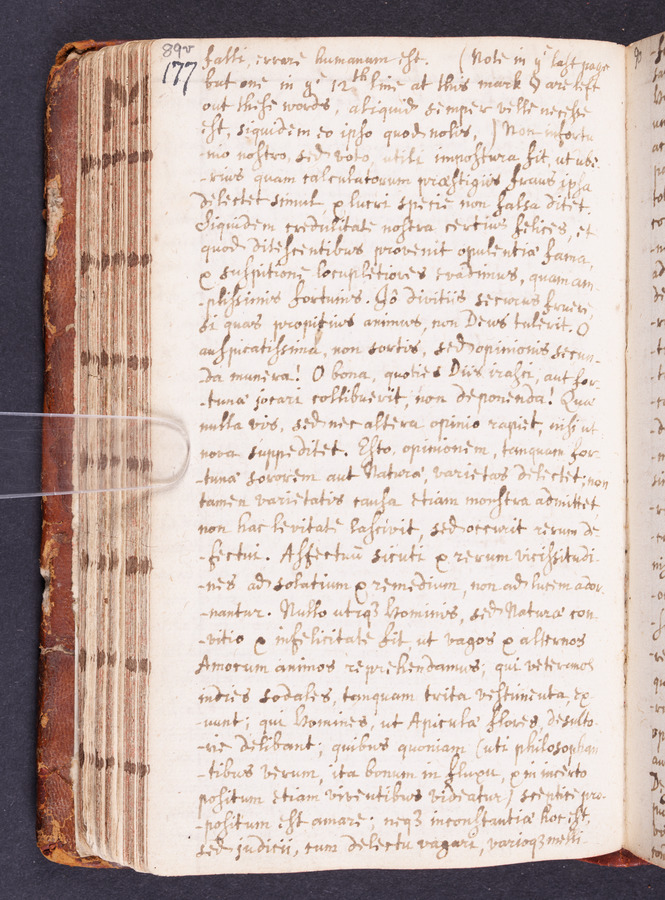 89v
177
falli, errare humanum est. (Note in yͤ last page
but one in yͤ 12th line at this mark are left
out these words, aliquid semper velle necesse
est, siquidem eo ipso quod nolis,) Non infortu
-nio nostro, sed voto, utili impostura fit, ut ube
-rius quam calculatorum præstigiis fraus ipsa
delectet simul & lucri specie non falsa ditet.
Siquidem credulitate nostra certius felices, et
quod ditescentibus provenit opulentiæ fama,
& suspitione locupletiores evadimus, quam am
-plissimis fortunis. Iô divitiis securus fruere,
si quas propitius animus, non Deus tulerit. O
auspicatissima, non sortis, sed opinionis secun-
-da munera! O bona, quoties Diis irasci, aut for
-tunæ jocari collibuerit, non deponenda! Quæ
nulla vis, sed nec altera opinio rapiet, nisi ut
nova suppeditet. Esto, opinionem, tanquam for
-tunæ sororem aut Naturæ, varietas delectet; non
tamen varietatis causa etiam monstra admittet
non hac levitate lascivit, sed occurit rerum de
-fectui. Affectuū sicuti & rerum vicissitudi
-nes ad solatium & remedium, non ad lucem ador
-nantur. Nullo utiqꝫ Hominis, sed Naturæ con
-vitio & infelicitate fit ut vagos & alternos
Amorum animos reprehendamus; qui veteranos
indies sodales, tanquam trita vestimenta, ex
-uunt; qui Homines, ut Apiculæ flores, desulto-
-rie delibant; quibus quoniam (uti philosophan
-tibus verum, ita bonum in fluxu, & in incerto
positum etiam viventibus videatur) scepticè pro-
-positum est amare; neqꝫ inconstantiæ hoc est,
sed judicii, cum delectu vagari, varioqꝫ melli-